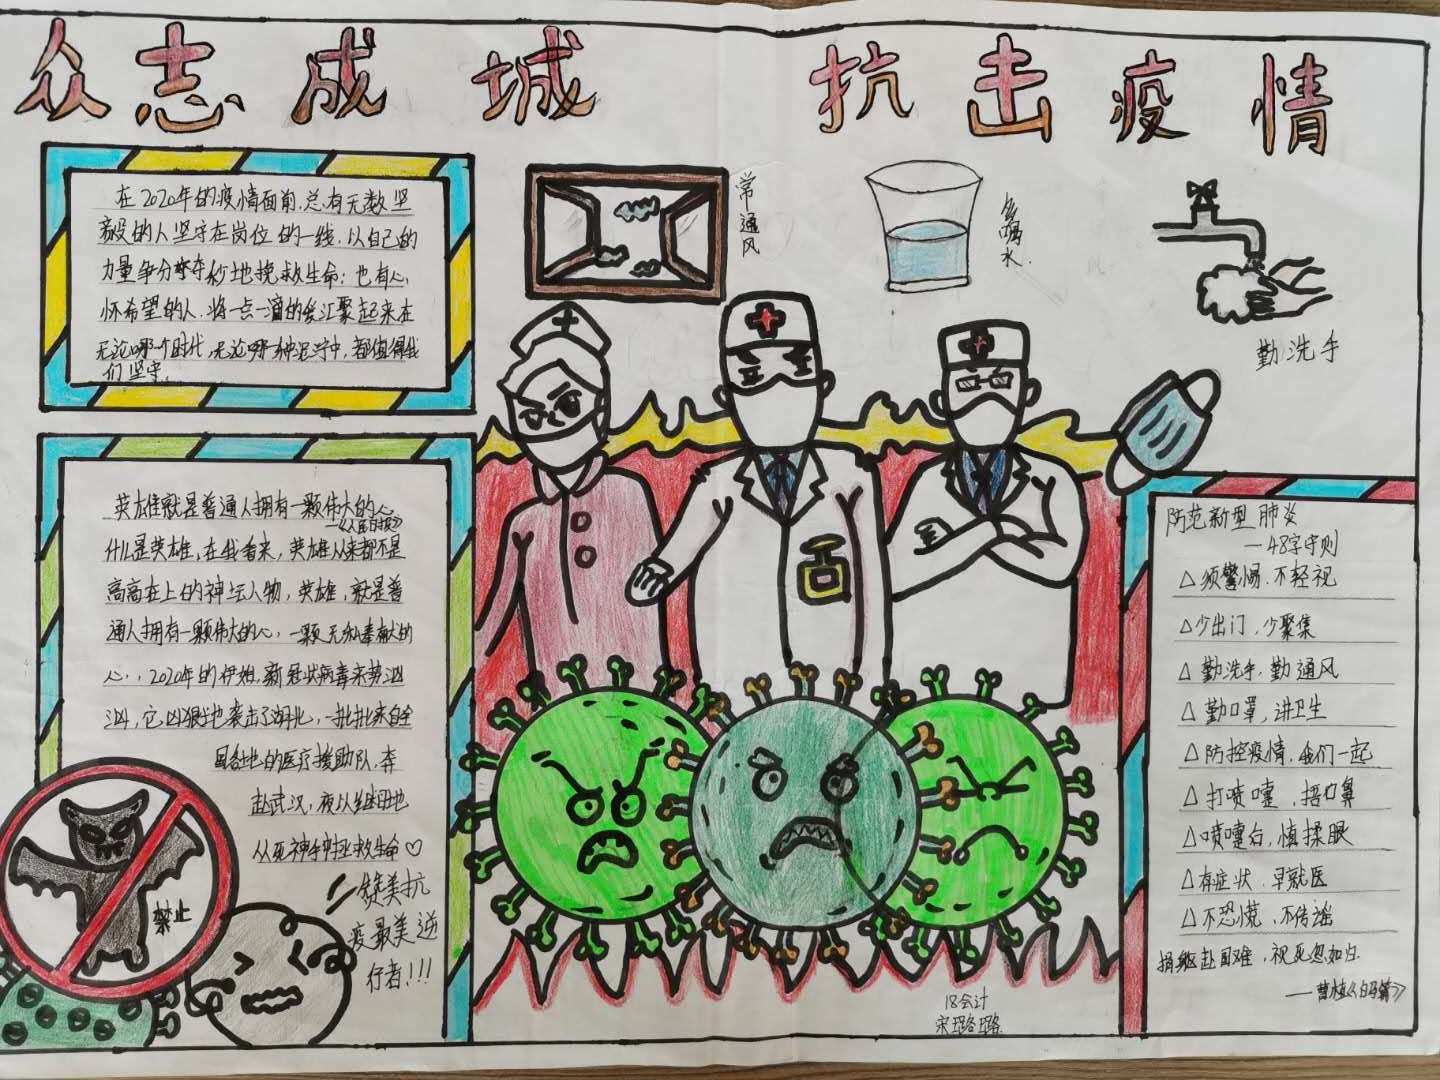 众志成城 抗击疫情
在2020年的疫情面前,总有无数坚
毅的人坚守在岗位的一线,以自己的
力量争分夺秒地挽救生命;也有心
怀希望的人,将一点一滴的爱汇聚起来在
无论哪个时代,无论哪种坚守中,都值得我
们坚守.
常通风
多喝水.
勤洗手
英雄就是普通人拥有一颗伟大的心.
什么是英雄,在我看来,英雄从来都不是
高高在上的神坛人物,英雄,就是普
通人拥有一颗伟大的心,一颗无私奉献的
心,2020年的伊始,新冠状病毒来势汹
汹,它凶狠地袭击了湖北,一批批来自全
国各地的医疗援助队,奔
赴武汉,夜以继日地
从死神手中拯救生命♡
赞美抗
疫最美逆
行者!!!
禁止
防范新型肺炎
—48字守则
△须警惕,不轻视
△少出门,少聚集
△勤洗手,勤通风
△勤口罩,讲卫生
△防控疫情,我们一起
△打喷嚏,捂口鼻
△喷嚏后,慎揉眼
△有症状,早就医
△不恐慌,不传谣
捐躯赴国难,视死忽如归.
——曹植《白马篇》
18会计
宋璐璐